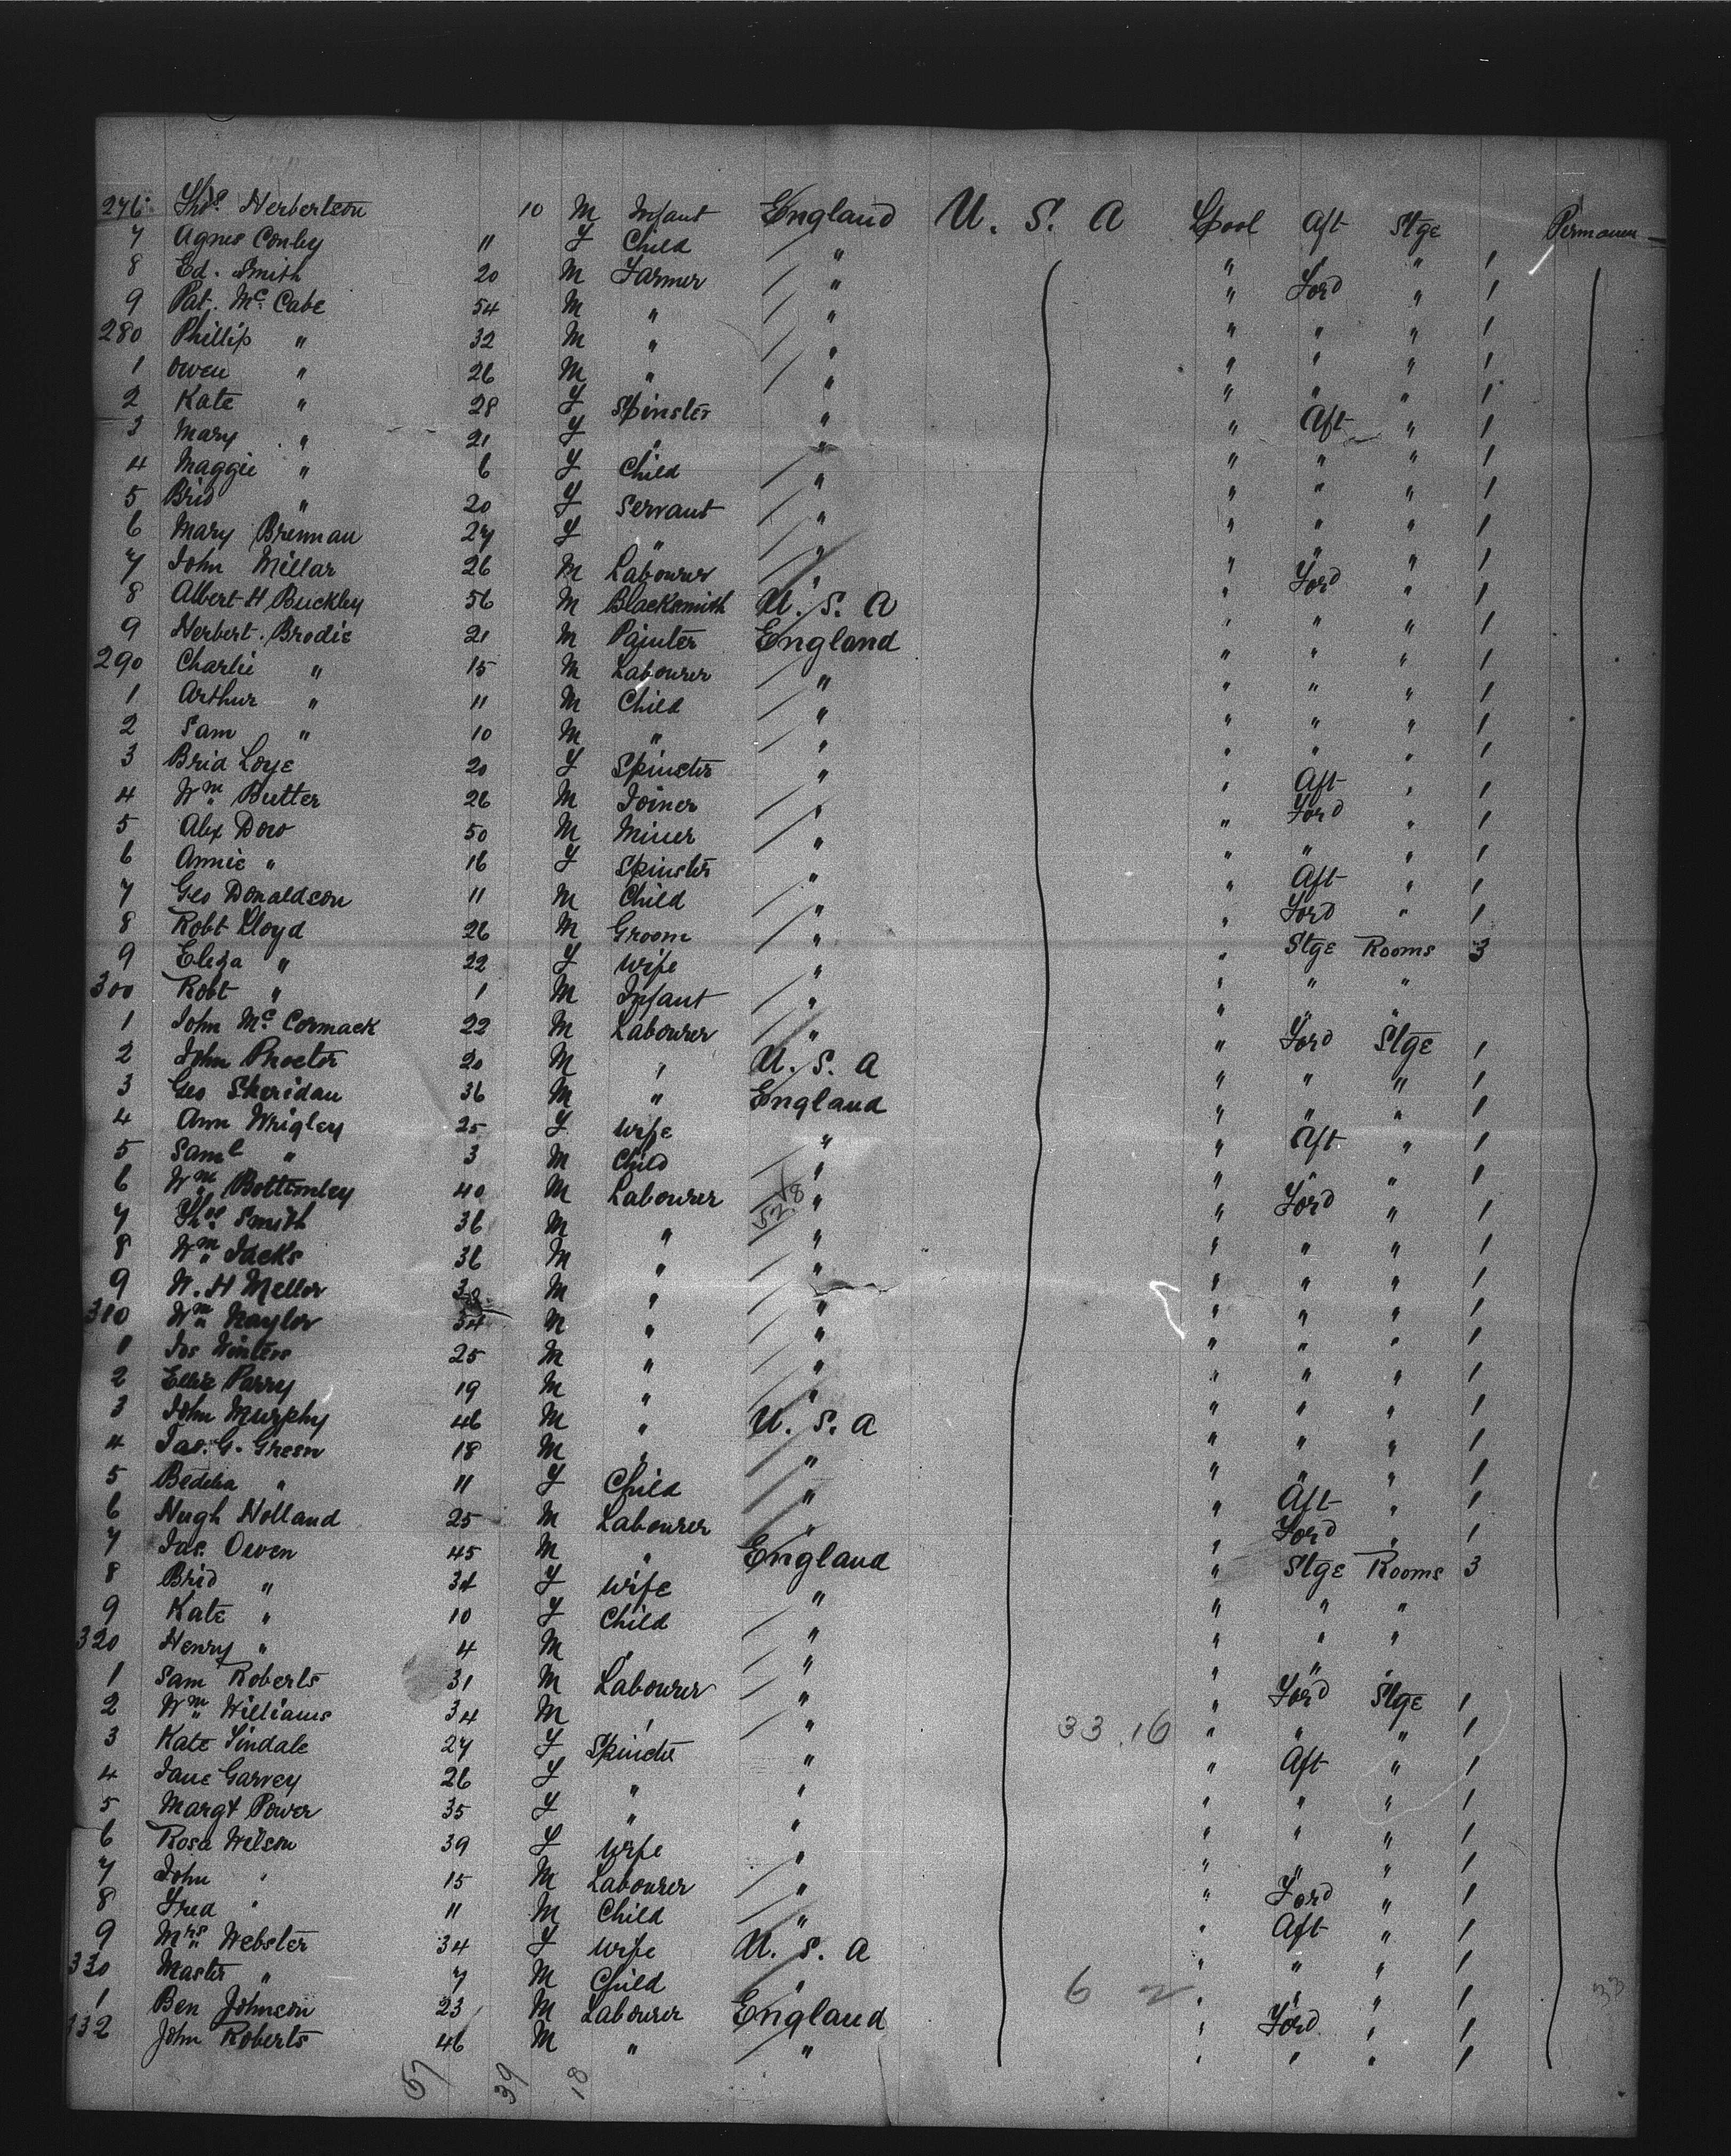 276 Thos. Herbertson 10 M Infant England U. S. A Lpool Aft Stge Permanen
7 Agnes Conley 11 F Child " " " " 1
8 Ed. Smith 20 M Farmer " " Ford " 1
9 Pat. Mc. Cabe 54 M " " " " " 1
280 Phillip " 32 M " " " " " 1
1 Owen " 26 M " " " " " 1
2 Kate " 28 F Spinster " " Aft " 1
3 Mary " 21 F " " " " " 1
4 Maggie " 6 F Child " " " " 1
5 Brid " 20 F Servant " " " " 1
6 Mary Brennan 27 F " " " " " 1
7 John Millar 26 M Labourer " " Ford " 1
8 Albert H Buckley 56 M Blacksmith U. S. A " " " 1
9 Herbert. Brodie 21 M Painter England " " " 1
290 Charlie " 15 M Labourer " " " " 1
1 Arthur " 11 M Child " " " " 1
2 Sam " 10 M " " " " " 1
3 Brid Loye 20 F Spinster " " Aft " 1
4 Wm. Butter 26 M Joiner " " Ford " 1
5 Alex Dow 50 M Miner " " " " 1
6 Annie " 16 F Spinster " " Aft " 1
7 Geo Donaldson 11 M Child " " Ford " 1
8 Robt Lloyd 26 M Groom " " Stge Rooms 3
9 Eliza " 22 F Wife " " " "
300 Robt " 1 M Infant " " " "
1 John Mc. Cormack 22 M Labourer " " Ford Stge 1
2 John Proctor 20 M " U. S. A " " " 1
3 Geo Sheridan 36 M " England " " " 1
4 Ann Wrigley 25 F Wife " " Aft " 1
5 Saml " 3 M Child " " " " 1
6 Wm. Bottomley 40 M Labourer " " Ford " 1
7 Thos Smith 36 M " " " " " 1
8 Wm. Jacks 36 M " " " " " 1
9 W. H Mellor 38 M " " " " " 1
310 Wm. Naylor 34 M " " " " " 1
1 Jos Winters 25 M " " " " " 1
2 Ellis Parry 19 M " " " " " 1
3 John Murphy 46 M " U. S. A " " " 1
4 Jas. G. Green 18 M " " " " " 1
5 Bedelia " 11 F Child " " Aft " 1
6 Hugh Holland 25 M Labourer " " Ford " 1
7 Jas. Owen 45 M " England " Stge Rooms 3
8 Brid " 34 F Wife " " " "
9 Kate " 10 F Child " " " "
320 Henry " 4 M " " " " "
1 Sam Roberts 31 M Labourer " " Ford Stge 1
2 Wm. Williams 34 M " " 33.16 " " " 1
3 Kate Tindale 27 F Spinster " " Aft " 1
4 Jane Garvey 26 F " " " " " 1
5 Margt Power 35 F " " " " " 1
6 Rosa Wilson 39 F Wife " " " " 1
7 John " 15 M Labourer " " Ford " 1
8 Fred " 11 M Child " " Aft " 1
9 Mrs Webster 34 F Wife U. S. A " " " 1
330 Master " 7 M Child " 6 2 " " " 1
1 Ben Johnson 23 M Labourer England " Ford " 1
332 John Roberts 46 M " " " " " 1
57 39 18